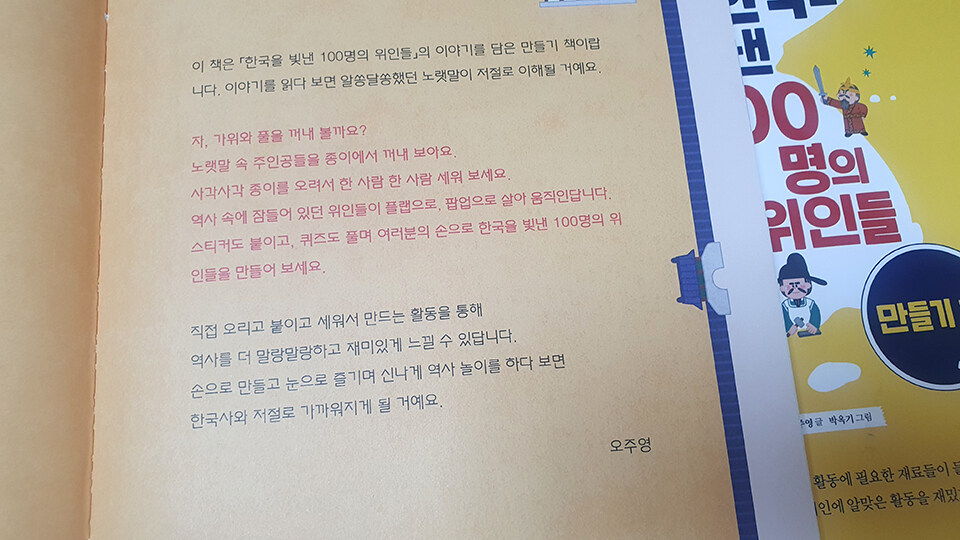 이 책은 「한국을 빛낸 100명의 위인들」의 이야기를 담은 만들기 책이랍
니다. 이야기를 읽다 보면 알쏭달쏭했던 노랫말이 저절로 이해될 거예요.
자, 가위와 풀을 꺼내 볼까요?
노랫말 속 주인공들을 종이에서 꺼내 보아요.
사각사각 종이를 오려서 한 사람 한 사람 세워 보세요.
역사 속에 잠들어 있던 위인들이 플랩으로, 팝업으로 살아 움직인답니다.
스티커도 붙이고, 퀴즈도 풀며 여러분의 손으로 한국을 빛낸 100명의 위
인들을 만들어 보세요.
직접 오리고 붙이고 세워서 만드는 활동을 통해
역사를 더 말랑말랑하고 재미있게 느낄 수 있답니다.
손으로 만들고 눈으로 즐기며 신나게 역사 놀이를 하다 보면
한국사와 저절로 가까워지게 될 거예요.
오주영
00
명의
위인들
만들기
주영 글 박옥기 그림
활동에 필요한 재료들이
위인에 알맞은 활동을 재밌